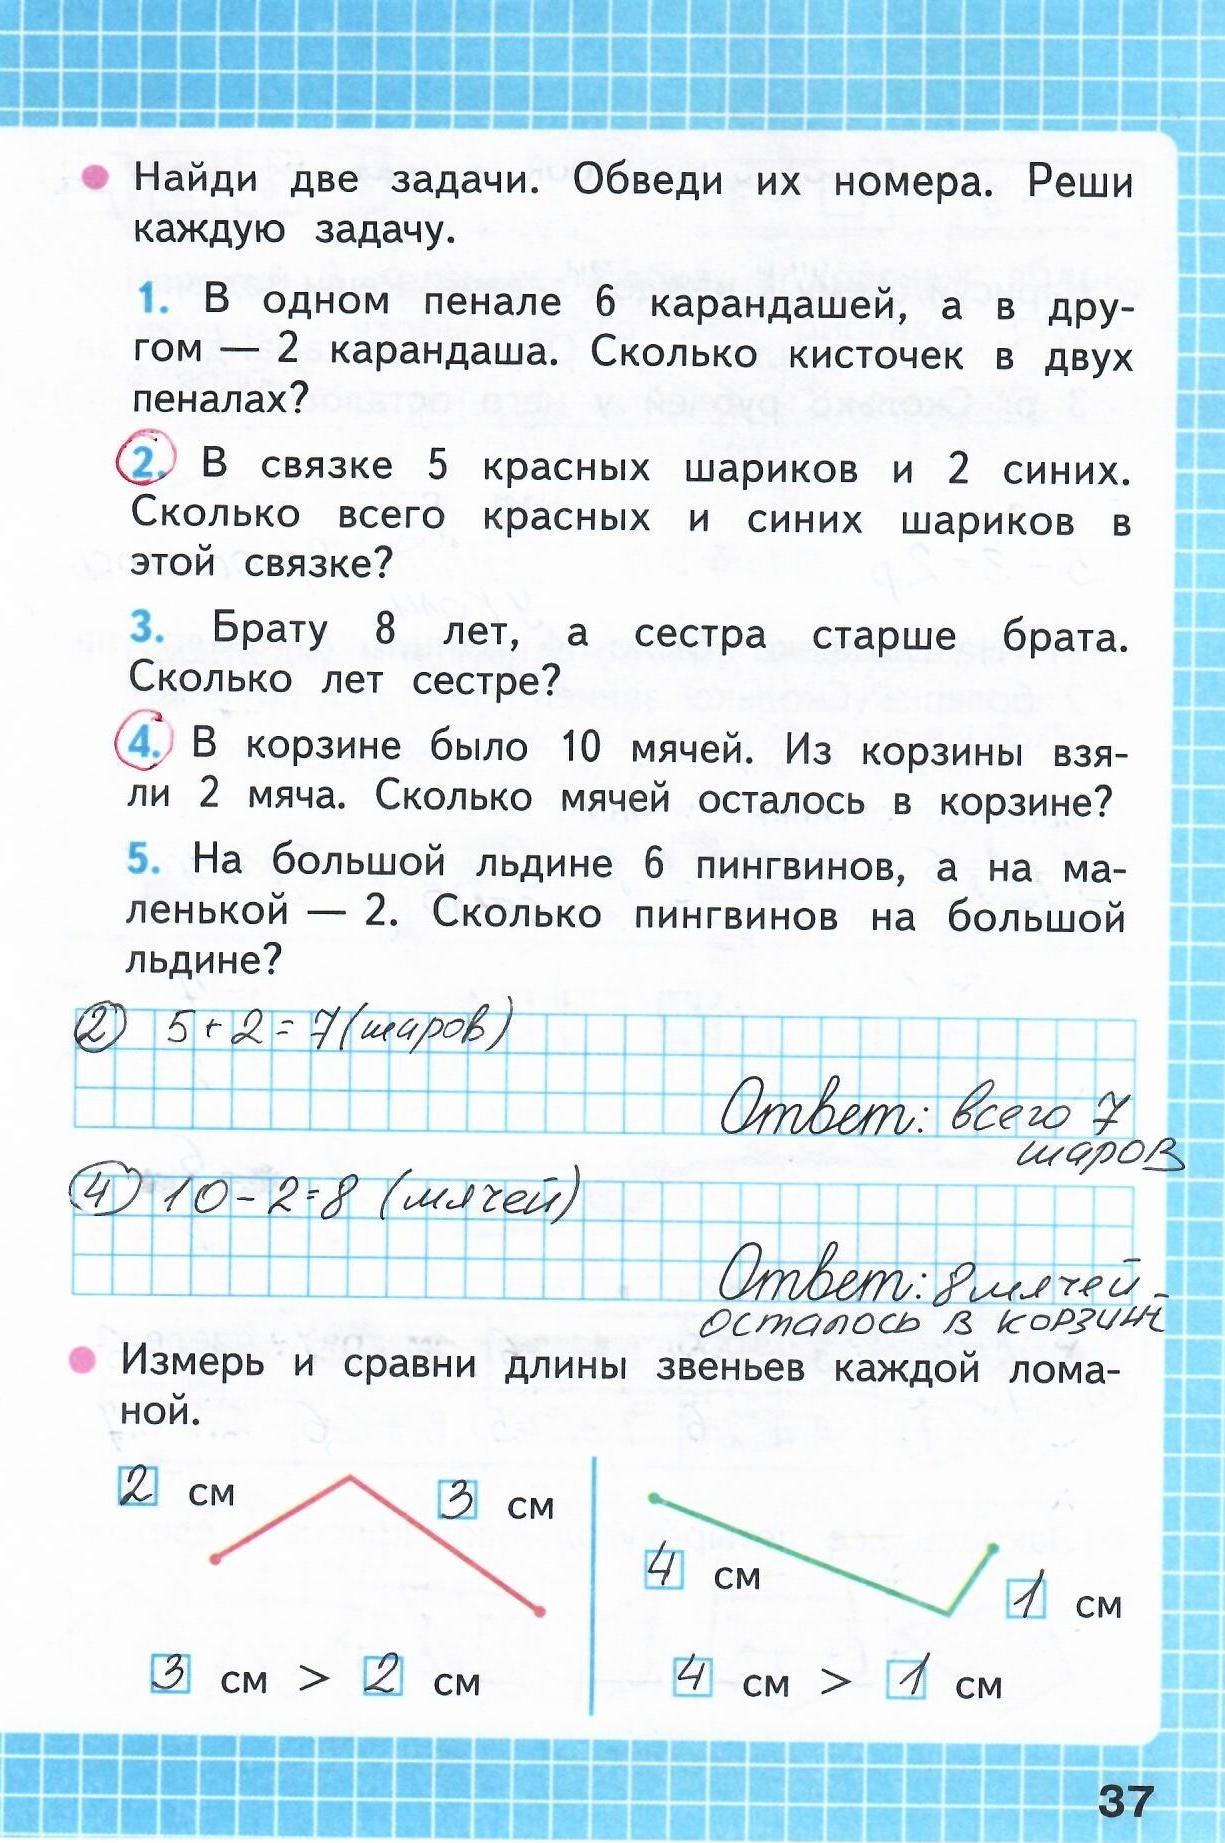 Найди две задачи. Обведи их номера. Реши
каждую задачу.
1. В одном пенале 6 карандашей, а в дру-
гом — 2 карандаша. Сколько кисточек в двух
пеналах?
2. В связке 5 красных шариков и 2 синих.
Сколько всего красных и синих шариков в
этой связке?
3. Брату 8 лет, а сестра старше брата.
Сколько лет сестре?
4. В корзине было 10 мячей. Из корзины взя-
ли 2 мяча. Сколько мячей осталось в корзине?
5. На большой льдине 6 пингвинов, а на ма-
ленькой — 2. Сколько пингвинов на большой
льдине?
2) 5+2=7(шаров)
Ответ: всего 7
шаров
4) 10-2=8 (мячей)
Ответ: 8 мячей
осталось в корзине
Измерь и сравни длины звеньев каждой лома-
ной.
2 см 3 см
4 см 1 см
3 см > 2 см 4 см > 1 см
37